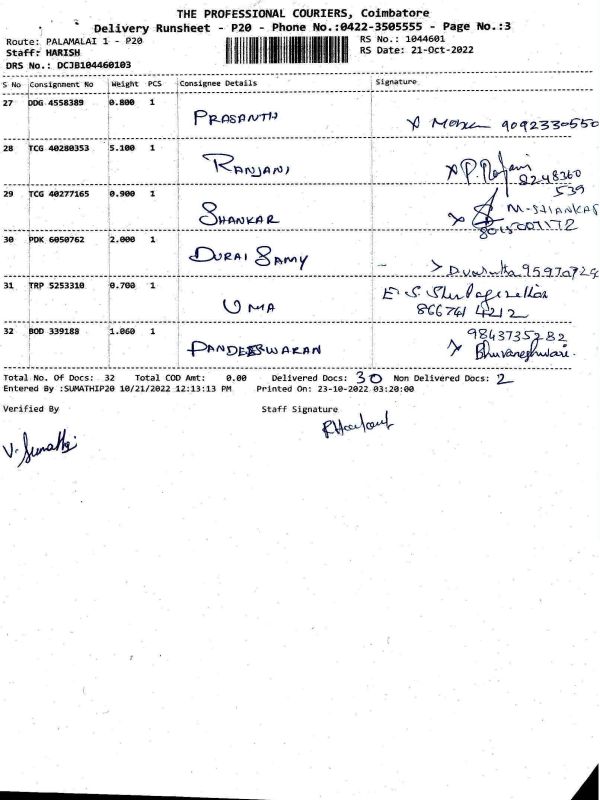 THE PROFESSIONAL COURIERS, Coimbatore
Delivery Runsheet - P20 - Phone No.:0422-3505555 - Page No.:3
Route: PALAMALAI 1 - P20 RS No.: 1044601
Staff: HARISH RS Date: 21-Oct-2022
DRS No.: DCJB104460103
S No Consignment No Weight PCS Consignee Details Signature
27 DDG 4558389 0.800 1
PRASANTH 9092330550
28 TCG 40280353 5.100 1
RANJANI 8248360
539
29 TCG 40277165 0.900 1
SHANKAR M-SHANKAR
8015007172
30 PDK 6050762 2.000 1
DURAI SAMY
31 TRP 5253310 0.700 1 E. S.
UMA 866741 4212
32 BOD 339188 1.060 1 9843735282
PANDEESWARAN Bhuvaneshwari.
Total No. Of Docs: 32 Total COD Amt: 0.00 Delivered Docs: 30 Non Delivered Docs: 2
Entered By :SUMATHIP20 10/21/2022 12:13:13 PM Printed On: 23-10-2022 03:20:00
Verified By Staff Signature
V. Sumathi